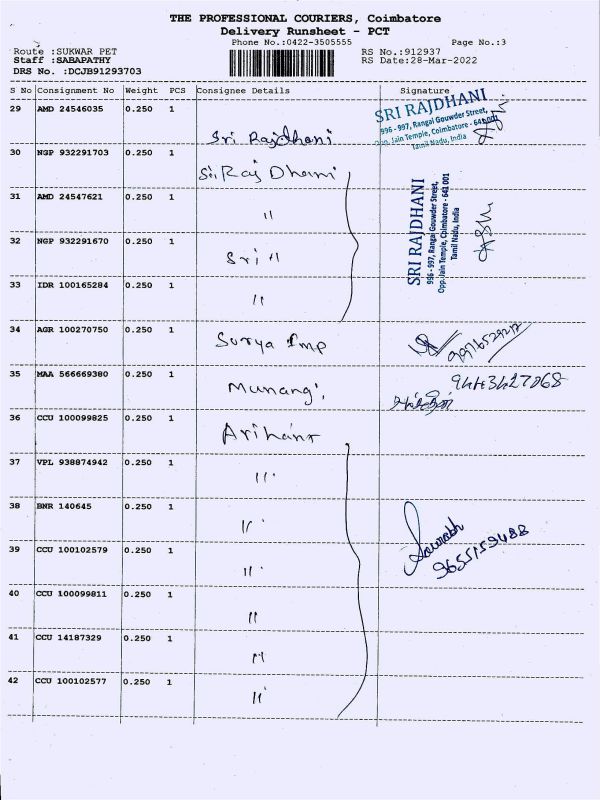 THE PROFESSIONAL COURIERS, Coimbatore
Delivery Runsheet - PCT
Phone No.:0422-3505555 Page No.:3
Route :SUKWAR PET RS No.:912937
Staff :SABAPATHY RS Date:28-Mar-2022
DRS No. :DCJB91293703
S No Consignment No Weight PCS Consignee Details Signature
29 AMD 24546035 0.250 1 Sri Rajdhani
SRI RAJDHANI
996 - 997, Rangai Gouwder Street,
Opp. Jain Temple, Coimbatore - 641 001
Tamil Nadu, India
30 NGP 932291703 0.250 1 Sri Raj Dhani
31 AMD 24547621 0.250 1 "
SRI RAJDHANI
996 - 997, Rangai Gouwder Street,
Opp. Jain Temple, Coimbatore - 641 001
Tamil Nadu, India
32 NGP 932291670 0.250 1 Sri "
33 IDR 100165284 0.250 1 "
34 AGR 100270750 0.250 1 Surya Imp
35 MAA 566669380 0.250 1 Munang
36 CCU 100099825 0.250 1 Arihant
37 VPL 938874942 0.250 1 "
38 BNR 140645 0.250 1 "
39 CCU 100102579 0.250 1 " Sourabh
9655159488
40 CCU 100099811 0.250 1 "
41 CCU 14187329 0.250 1 "
42 CCU 100102577 0.250 1 "